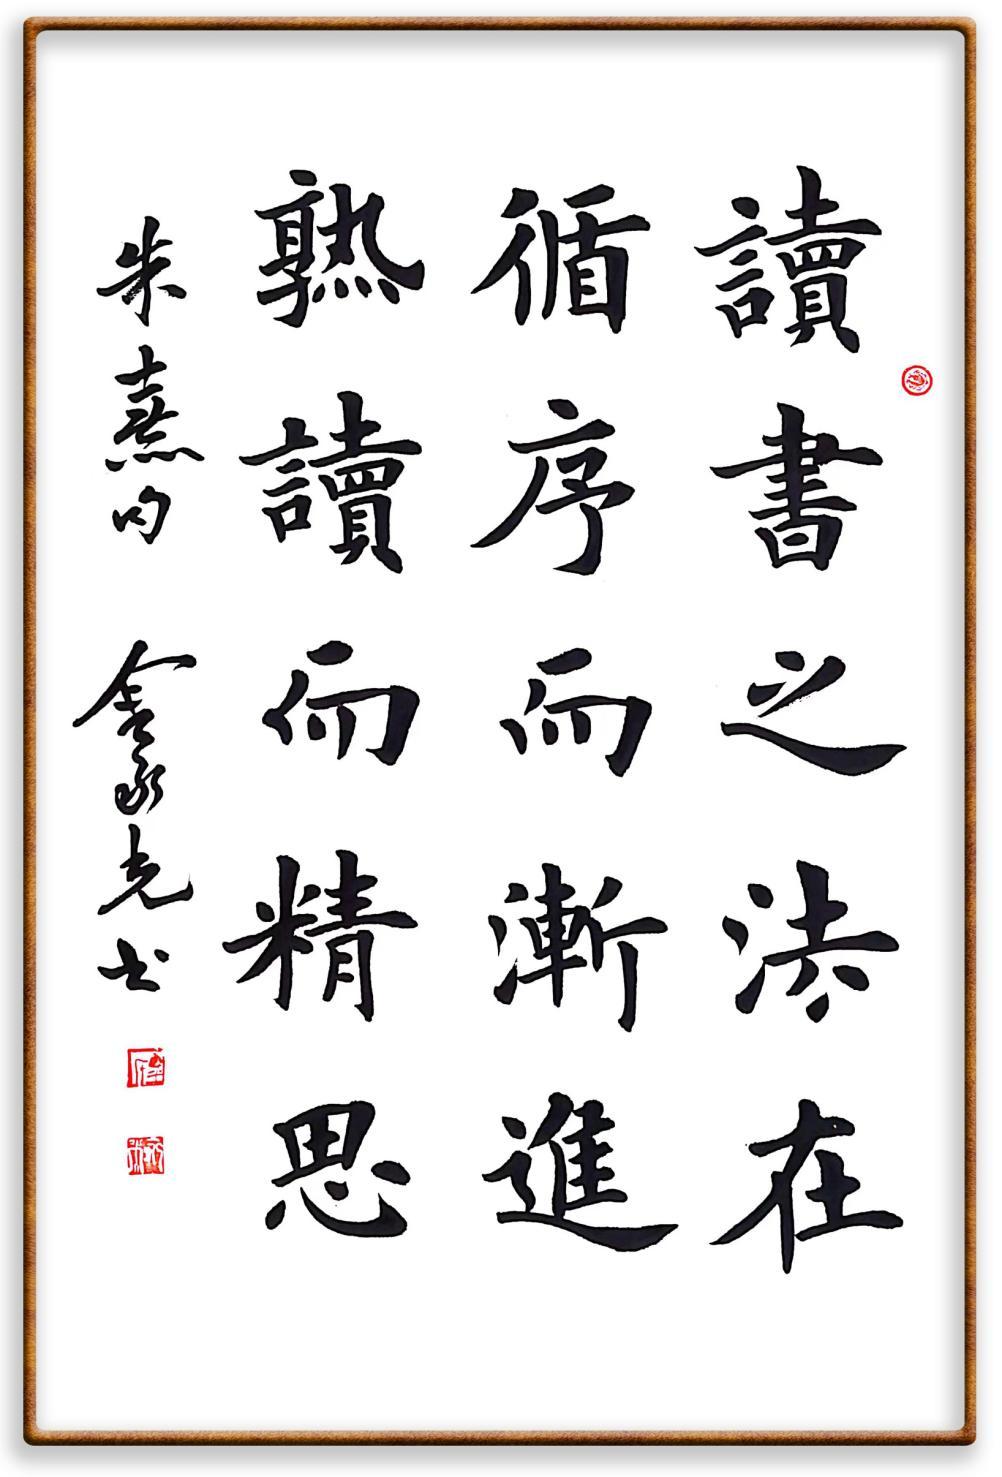 讀書之法在
循序而漸進
熟讀而精思
朱熹句 家光书